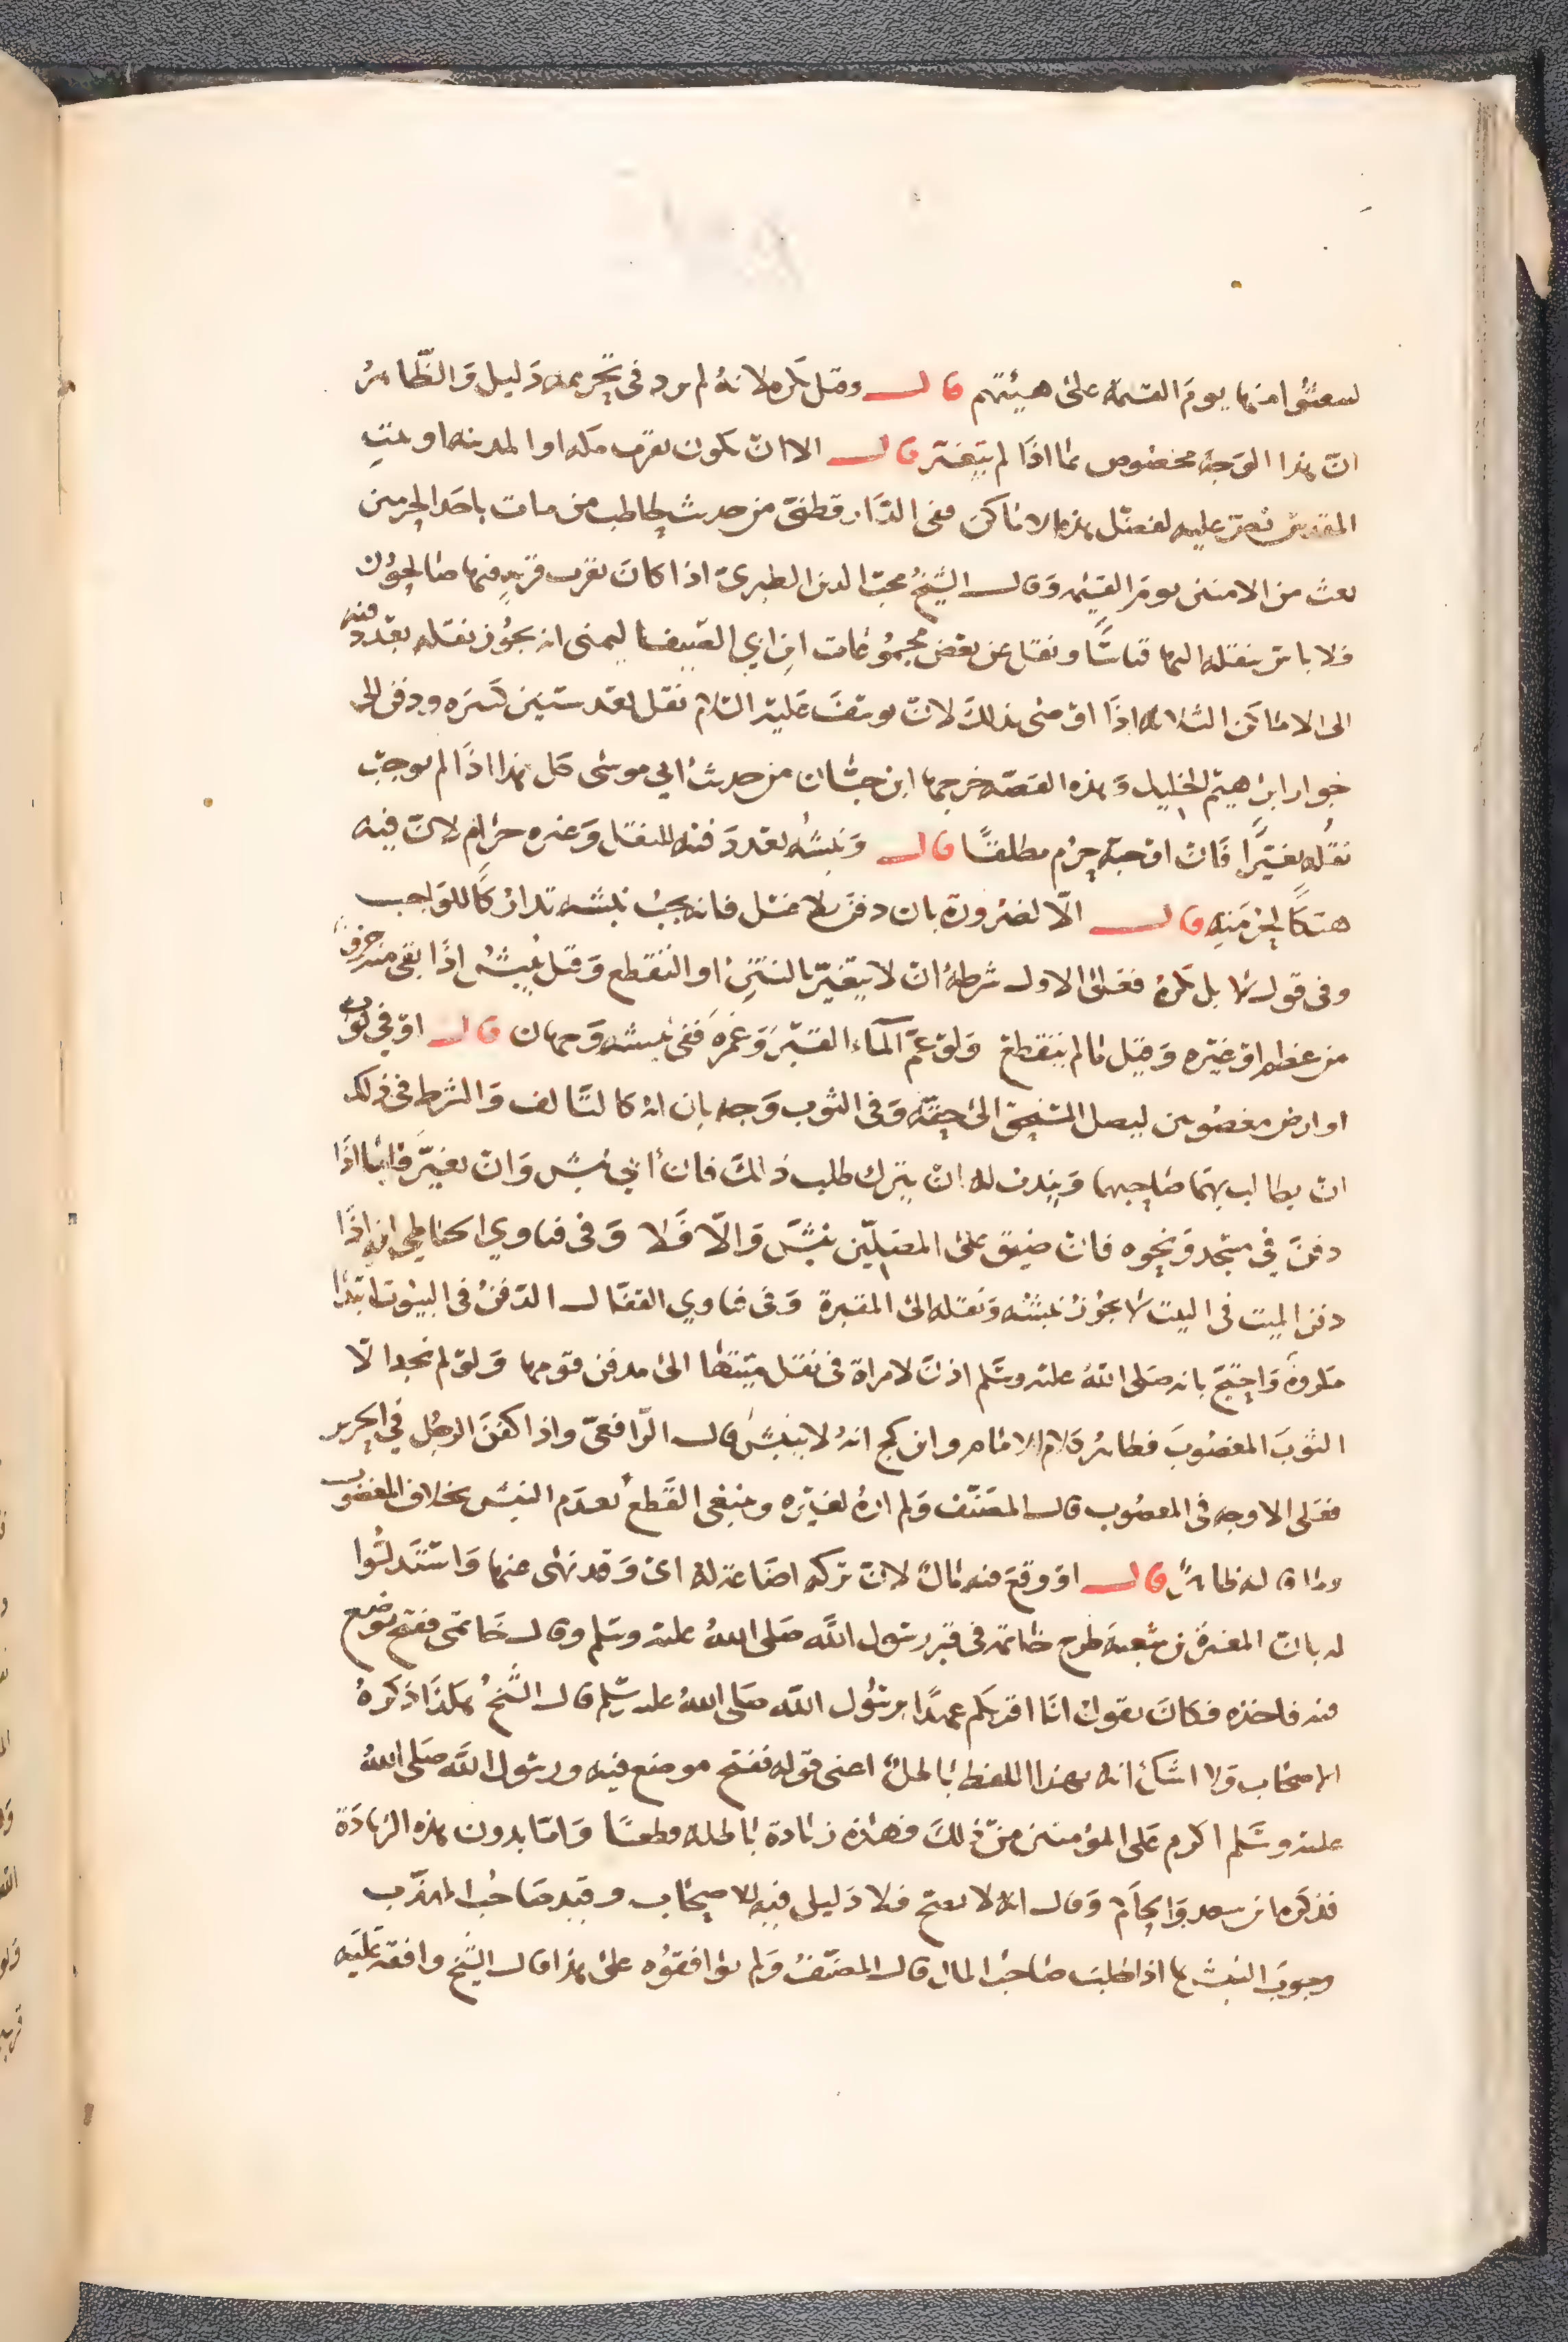 ليبعثوا منها يوم القيمة على هيئتهم قال وقيل يكره لانه لم يرد في تحريمه دليل والظاهر
ان هذا الوجه مخصوص بما اذا لم يتغير قال الا ان يكون بقرب مكه او المدينه او بيت
المقدس نص عليه لفضل هذه الاماكن ففي الدارقطني من حديث حاطب من مات باحد الحرمين
بعث من الامنين يوم القيمه وقال الشيخ محب الدين الطبري اذا كان بقرب قريه فيها صالحون
فلا باس بنقله اليها قياسا ونقل عن بعض مجموعات ابن ابي الصيف اليمني انه يجوز نقله بعد دفنه
الى الاماكن الثلاثه اذا اوصى بذلك لان يوسف عليه السلام نقل بعد سنين كثيره ودفن الى
جوار ابراهيم الخليل وهذه القصه خرجها ابن حبان من حديث ابي موسى كل هذا اذا لم يوجب
نقله تغيرا فان اوجبه حرم مطلقا قال ونبشه بعد دفنه للنقل وغيره حرام لان فيه
هتكا لحرمته قال الا لضرورة بان دفن بلا غسل فانه يجب نبشه تداركا للواجب
وفي قول لا بل يكره فعلى الاول شرطه ان لا يتغير بالنتن او التقطع وقيل ينبش اذا بقي منه جزء
من عظم او غيره وقيل ما لم يتقطع ولو عم الماء القبر وغمره ففي نبشه وجهان قال او في ثوب
او ارض مغصوبين ليصل المستحق الى حقه وفي الثوب وجه بان له كالتالف والشرط في ذلك
ان يطالب بهما صاحبهما ويندب له ان يترك طلب ذلك فان ابى نبش وان تغير فاما اذا
دفن في مسجد ونحوه فان ضيق على المصلين نبش والا فلا وفي فتاوي الحناطي انه اذا
دفن الميت في البيت لا يجوز نبشه ونقله الى المقبرة وفي فتاوي القفال الدفن في البيوت ابتدا
مكروه واحتج بانه صلى الله عليه وسلم اذن لامراة في نقل ميتها الى مدفن قومها ولو لم نجد الا
الثوب المغصوب فظاهر كلام الامام وابن كج انه لا ينبش قال الرافعي واذا كفن الرجل في الحرير
فعلى الاوجه في المغصوب قال المصنف ولم اره لغيره وينبغي القطع بعدم النبش بخلاف المغصوب
وما قاله ظاهر قال او وقع فيه مال لان تركه اضاعة له اي وقد نهى عنها واستدلوا
له بان المغيرة بن شعبة طرح خاتمه في قبر رسول الله صلى الله عليه وسلم وقال خاتمي ففتح موضع
فيه فاخذه فكان يقول انا اقربكم عهدا برسول الله صلى الله عليه وسلم قال الشيخ هكذا ذكره
الاصحاب ولا اشك انه بهذا اللفظ باطل اعني قوله ففتح موضع فيه ورسول الله صلى الله
عليه وسلم اكرم على المؤمنين من ذلك فهذه زيادة باطله قطعا واما بدون هذه الزيادة
فذكره ابن سعد والحاكم وقال انه لا يصح فلا دليل فيه للاصحاب وقيد صاحب المهذب
وجوب النبش بما اذا طلب صاحب المال قال المصنف ولم يوافقوه على هذا قال الشيخ وافقه عليه